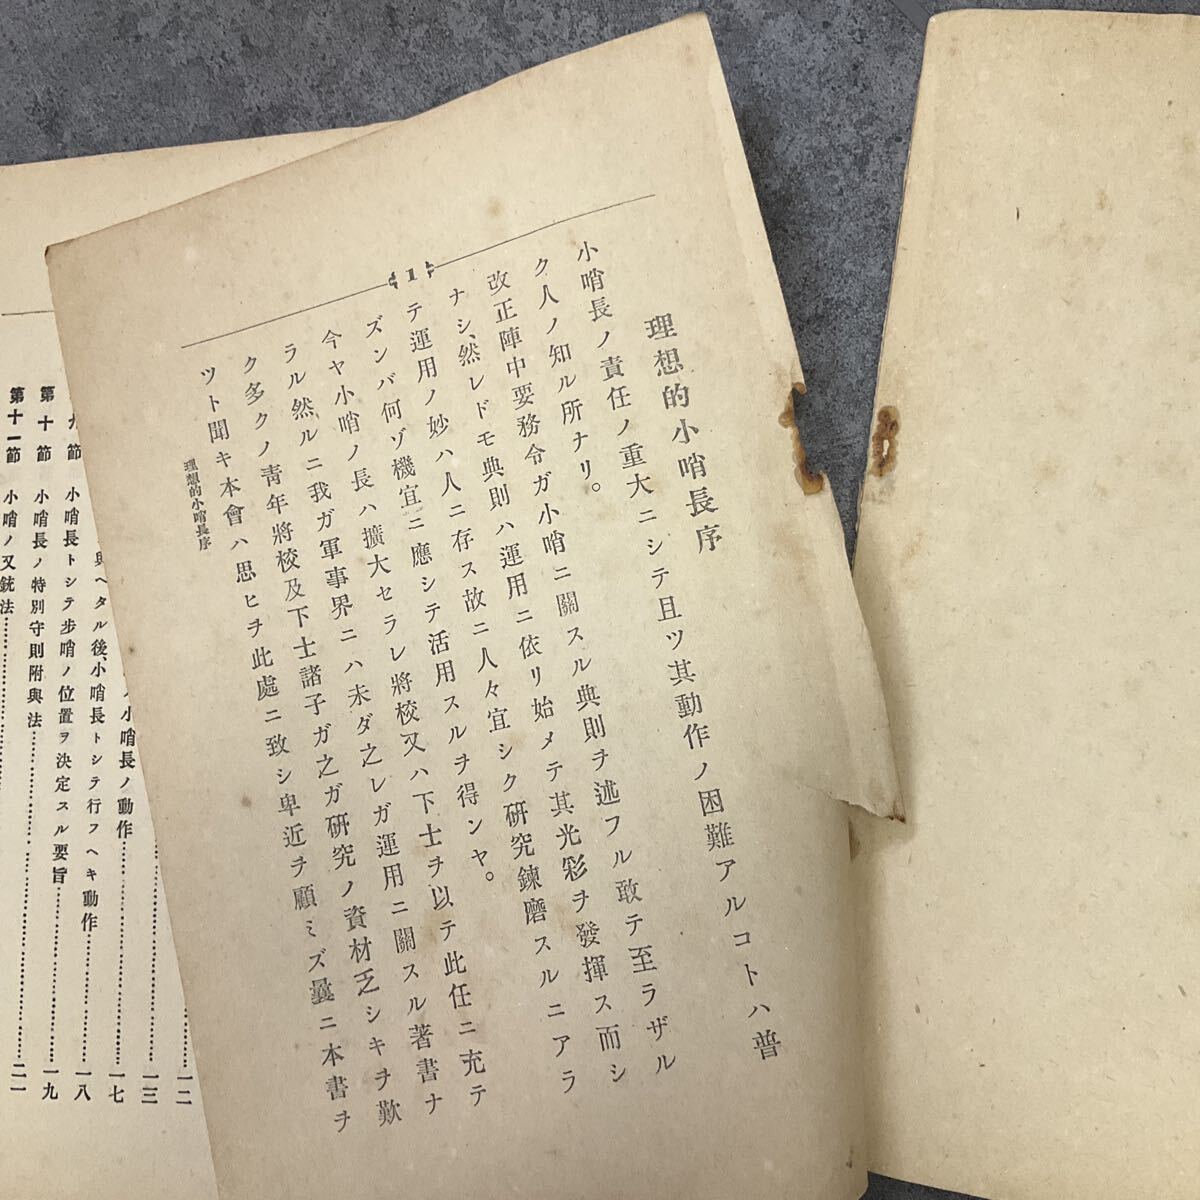 1
理想的小哨長序
小哨長ノ責任ノ重大ニシテ且ツ其動作ノ困難アルコトハ普
ク人ノ知ル所ナリ。
改正陣中要務令ガ小哨ニ關スル典則ヲ述フル敢テ至ラザル
ナシ、然レドモ典則ハ運用ニ依リ始メテ其光彩ヲ發揮ス而シ
テ運用ノ妙ハ人ニ存ス故ニ人々宜シク研究鍊磨スルニアラ
ズンバ何ゾ機宜ニ應シテ活用スルヲ得ンヤ。
今ヤ小哨ノ長ハ擴大セラレ將校又ハ下士ヲ以テ此任ニ充テ
ラル然ルニ我ガ軍事界ニハ未ダ之レガ運用ニ關スル著書ナ
ク多クノ青年將校及下士諸子ガ之ガ研究ノ資材乏シキヲ歎
ツト聞キ本會ハ思ヒヲ此處ニ致シ卑近ヲ顧ミズ曩ニ本書ヲ
理想的小哨長序
一二
一三
小哨長ノ動作…………一七
與ヘタル後、小哨長トシテ行フヘキ動作…………一八
九節 小哨長トシテ步哨ノ位置ヲ決定スル要旨…………一九
第十節 小哨長ノ特別守則附與法…………
第十一節 小哨ノ叉銃法…………二一